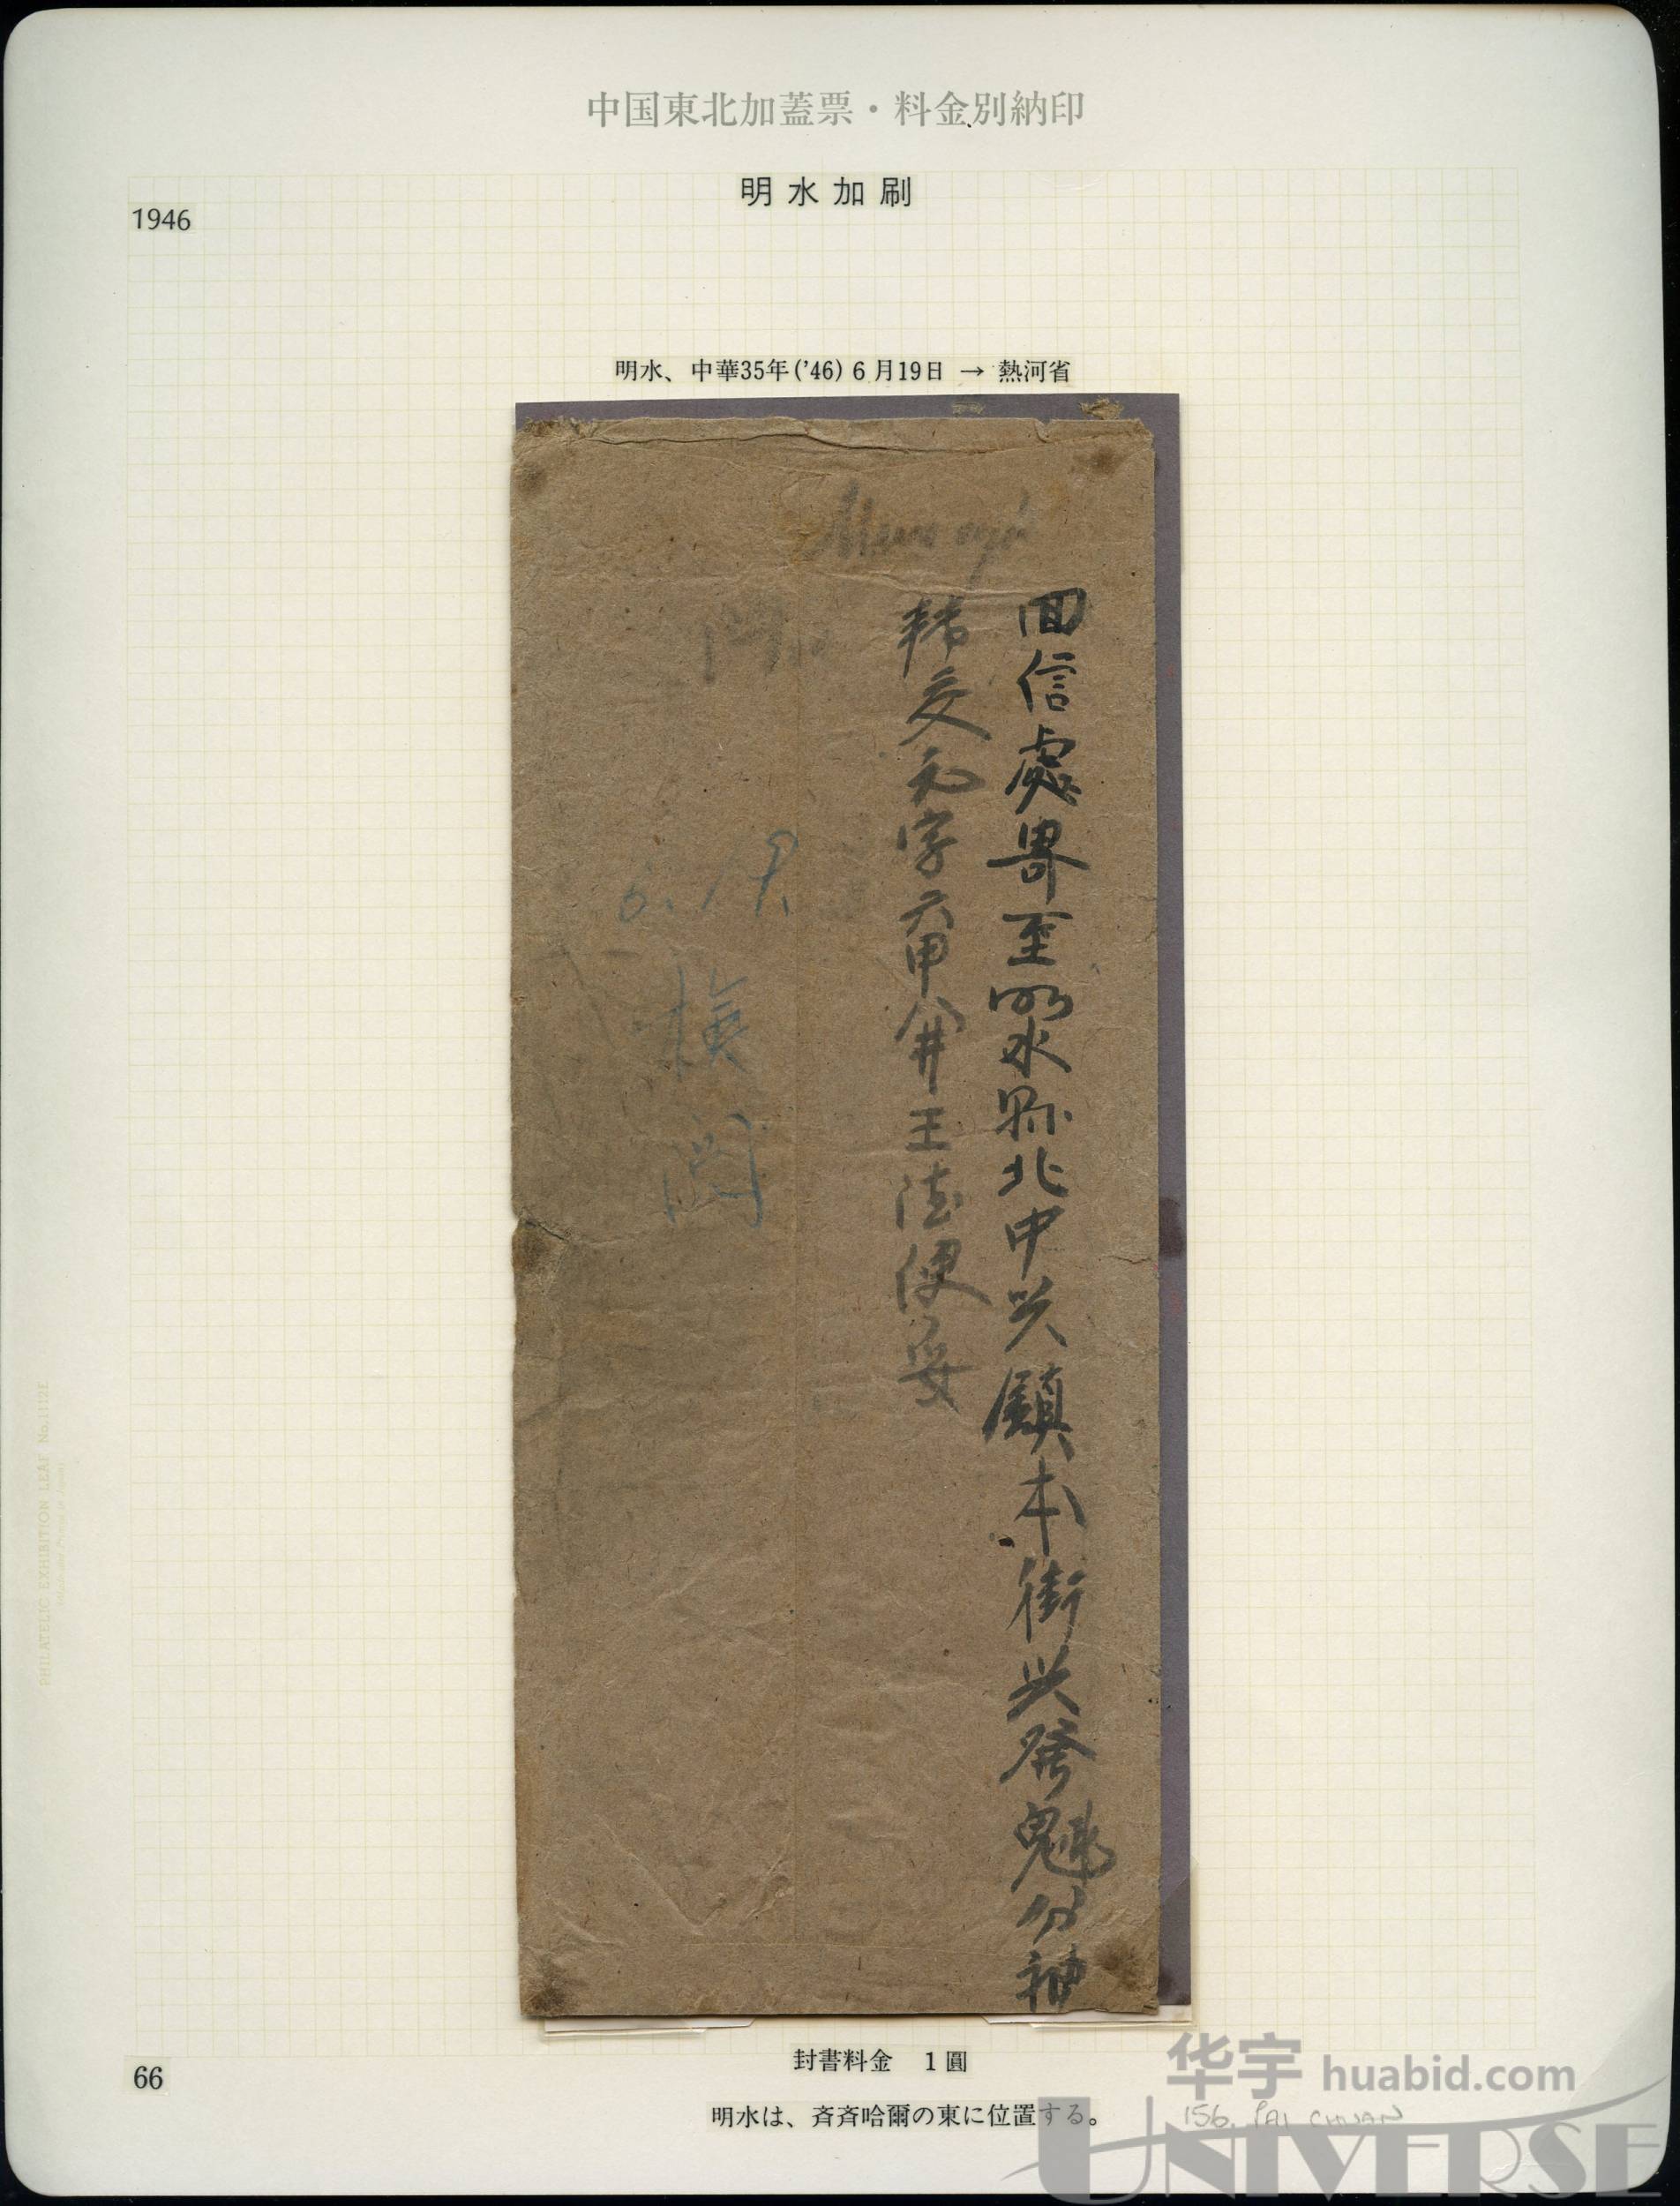 中国東北加蓋票・料金別納印
明水加刷
1946
明水、中華35年('46)6月19日 → 熱河省
回信處寄至明水縣北中兴鎮本街兴發魁分神
轉交元字六甲八井王法便妥
6.19.
検閲
封書料金 1圓
66
明水は、斉斉哈爾の東に位置する。
156. PAI CHUAN
华宇 huabid.com
UNIVERSE
PHILATELIC EXHIBITION LEAF No.1112E